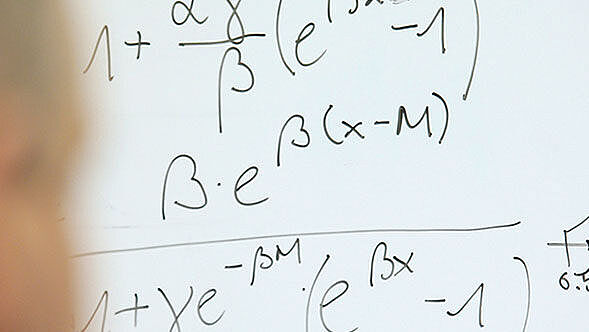 1 + αγ/β (e^βx - 1)
β · e^β(x-M)
1 + γe^-βM · (e^βx - 1)
6.5